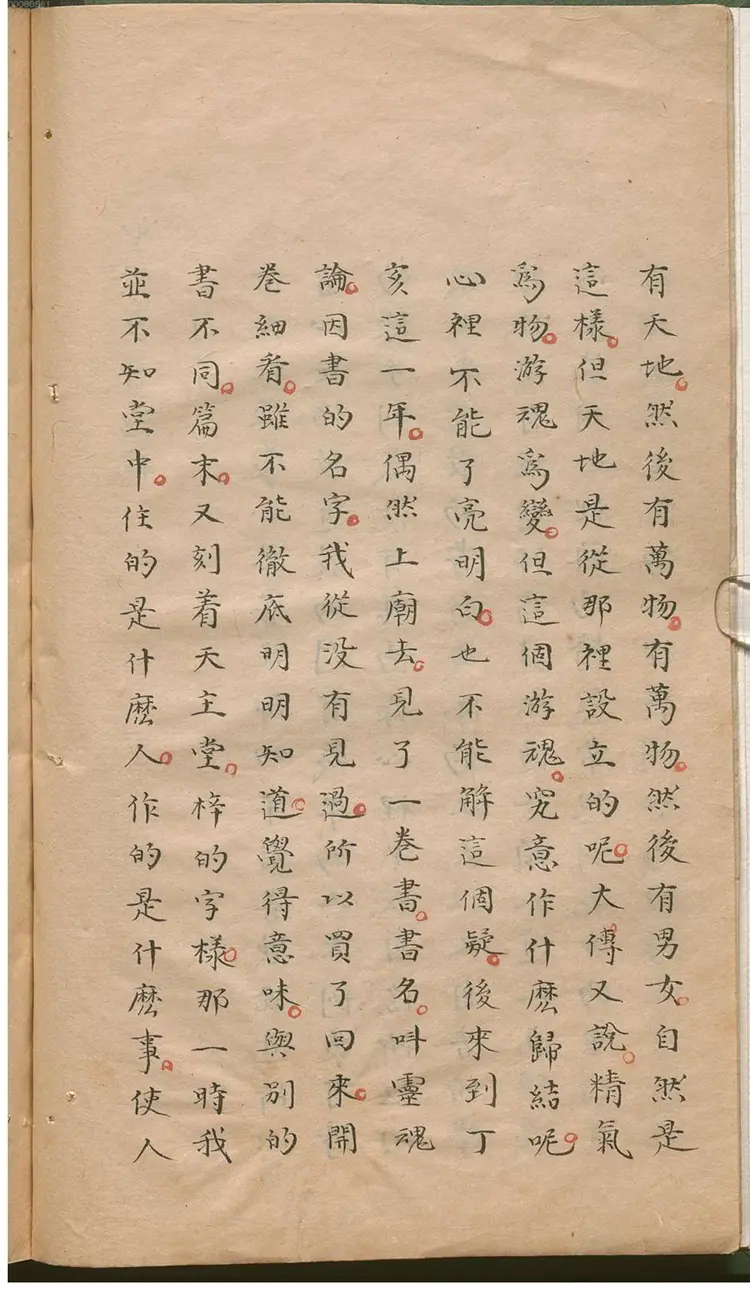 有天地。然後有萬物。有萬物。然後有男女。自然是
這樣。但天地是從那裡設立的呢。大傳又說。精氣
爲物。游魂爲變。但這個游魂。究意作什麽歸結呢。
心裡不能了亮明白。也不能解這個疑。後來到丁
亥這一年。偶然上廟去。見了一卷書。書名。叫靈魂
論。因書的名字。我從没有見過。所以買了回來。開
卷細看。雖不能徹底明明知道。覺得意味。與别的
書不同。篇末。又刻着天主堂。梓的字樣。那一時我
並不知堂中。住的是什麽人。作的是什麽事。使人